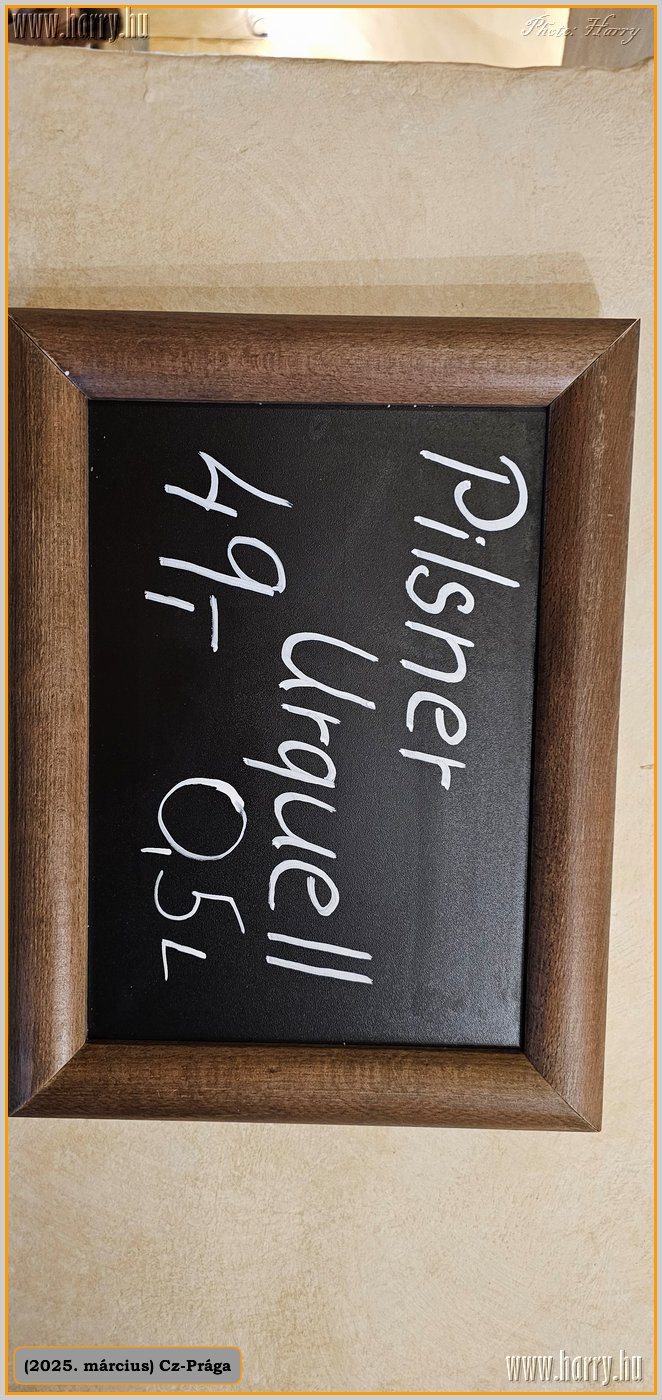 www.harry.hu
Photo: Harry
Pilsner
Urquell
49,- 0,5L
(2025. március) Cz-Prága
www.harry.hu